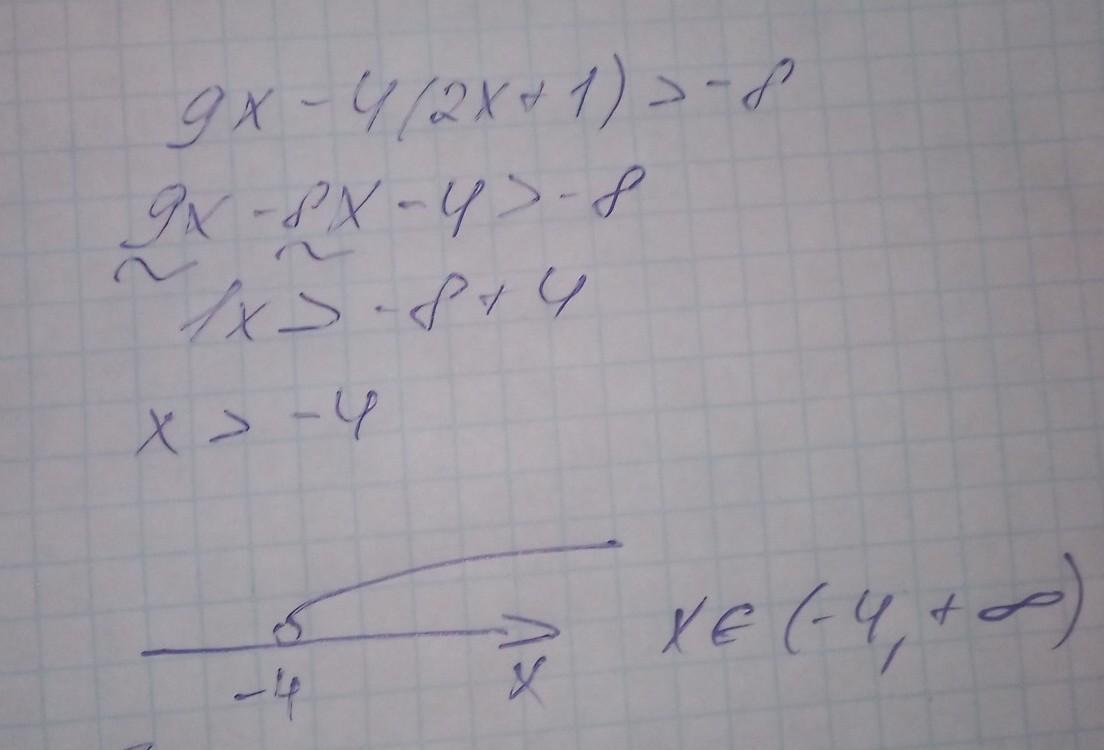 9x - 4(2x + 1) > -8
9x - 8x - 4 > -8
1x > -8 + 4
x > -4
-4 x x ∈ (-4, +∞)